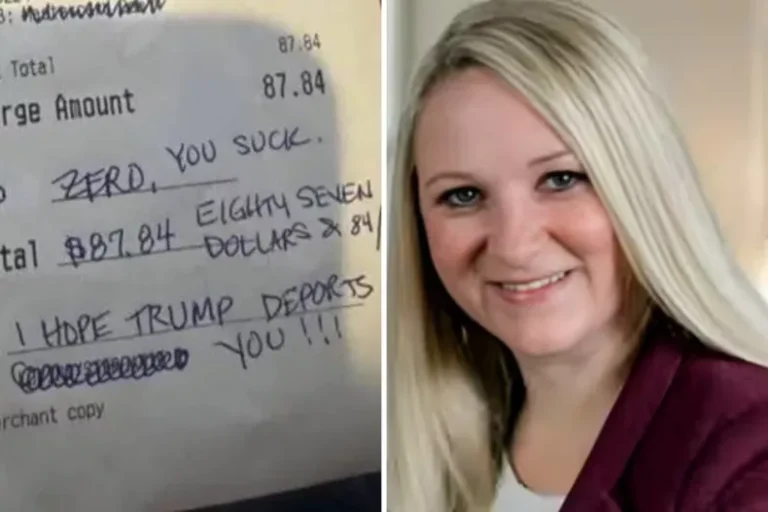 87.84
Total
rge Amount 87.84
ZERO, YOU SUCK.
tal $87.84 EIGHTY SEVEN
DOLLARS & 84/
I HOPE TRUMP DEPORTS
YOU!!!
rchant copy